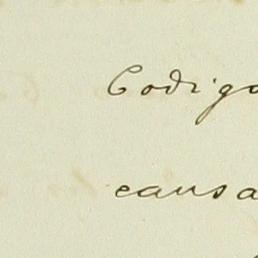 Codigo
causa